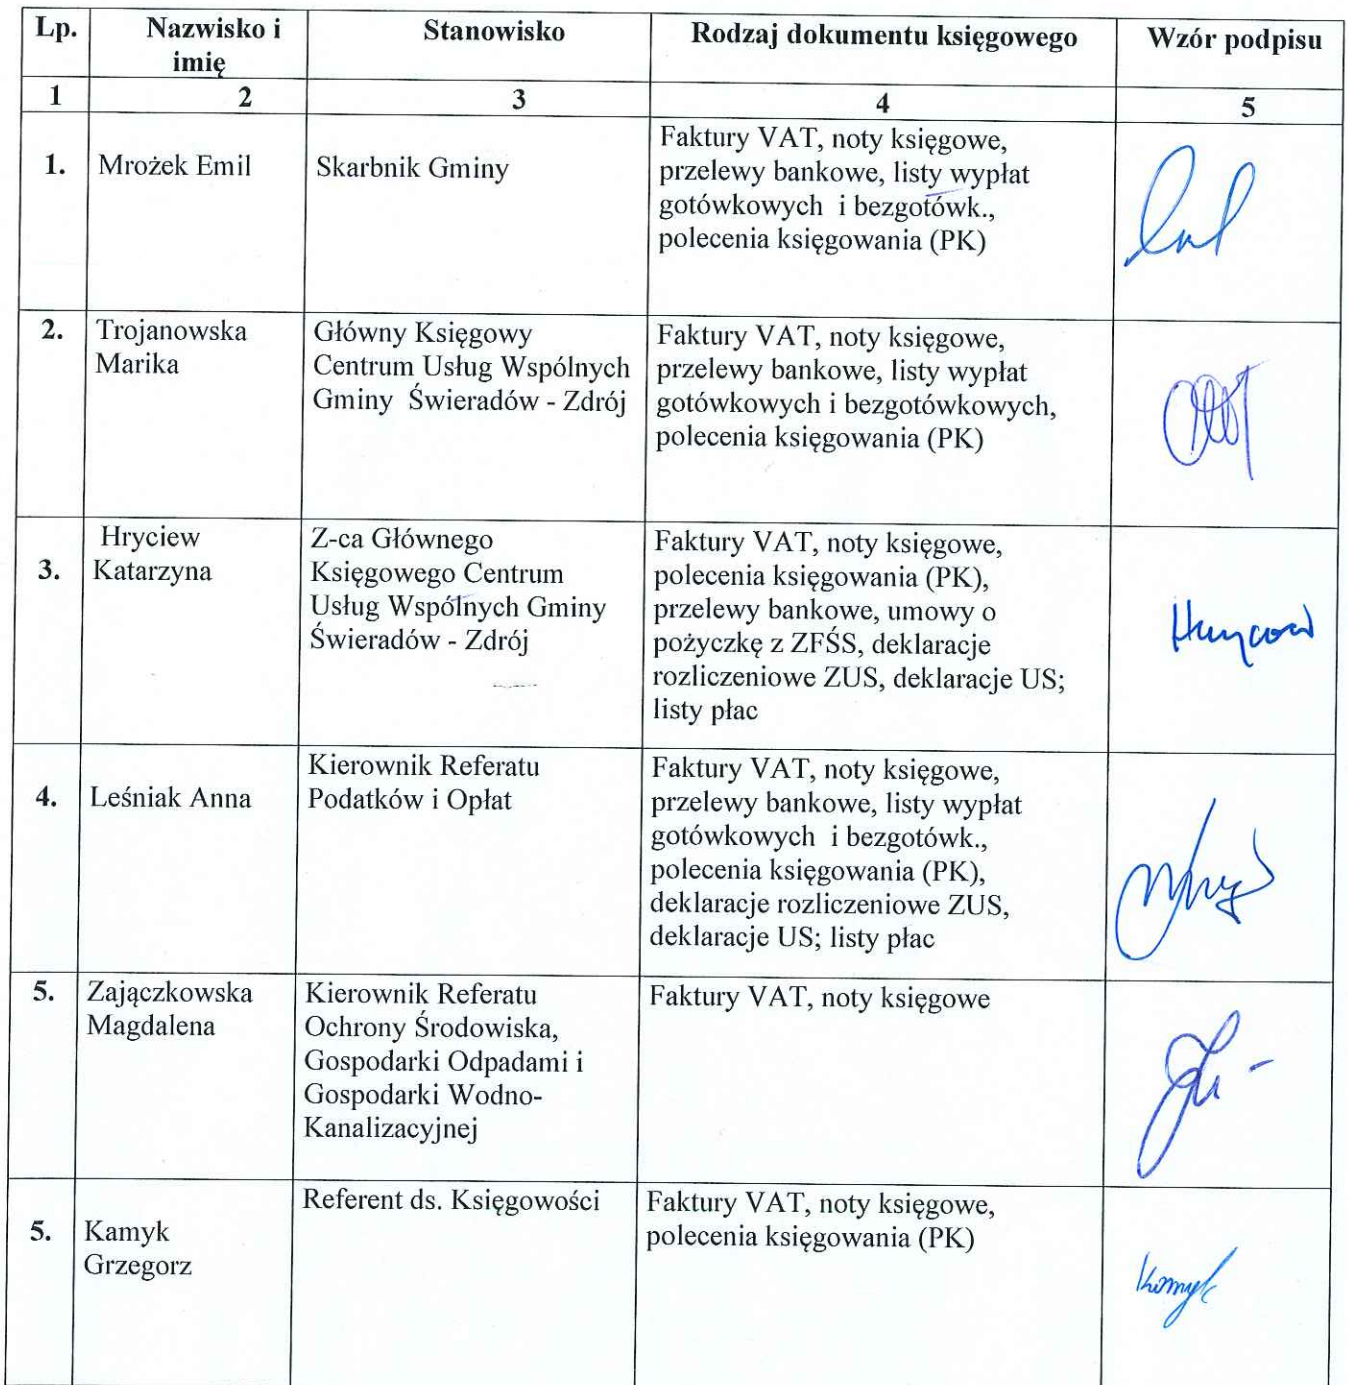 Lp. Nazwisko i imię Stanowisko Rodzaj dokumentu księgowego Wzór podpisu
1 2 3 4 5
1. Mrożek Emil
Skarbnik Gminy
Faktury VAT, noty księgowe,
przelewy bankowe, listy wypłat
gotówkowych i bezgotówk.,
polecenia księgowania (PK)
2. Trojanowska
Marika
Główny Księgowy
Centrum Usług Wspólnych
Gminy Świeradów - Zdrój
Faktury VAT, noty księgowe,
przelewy bankowe, listy wypłat
gotówkowych i bezgotówkowych,
polecenia księgowania (PK)
3. Hryciew
Katarzyna
Z-ca Głównego
Księgowego Centrum
Usług Wspólnych Gminy
Świeradów - Zdrój
Faktury VAT, noty księgowe,
polecenia księgowania (PK),
przelewy bankowe, umowy o
pożyczkę z ZFŚS, deklaracje
rozliczeniowe ZUS, deklaracje US;
listy płac
4. Leśniak Anna
Kierownik Referatu
Podatków i Opłat
Faktury VAT, noty księgowe,
przelewy bankowe, listy wypłat
gotówkowych i bezgotówk.,
polecenia księgowania (PK),
deklaracje rozliczeniowe ZUS,
deklaracje US; listy płac
5. Zajączkowska
Magdalena
Kierownik Referatu
Ochrony Środowiska,
Gospodarki Odpadami i
Gospodarki Wodno-
Kanalizacyjnej
Faktury VAT, noty księgowe
5. Kamyk
Grzegorz
Referent ds. Księgowości
Faktury VAT, noty księgowe,
polecenia księgowania (PK)
Kamyk